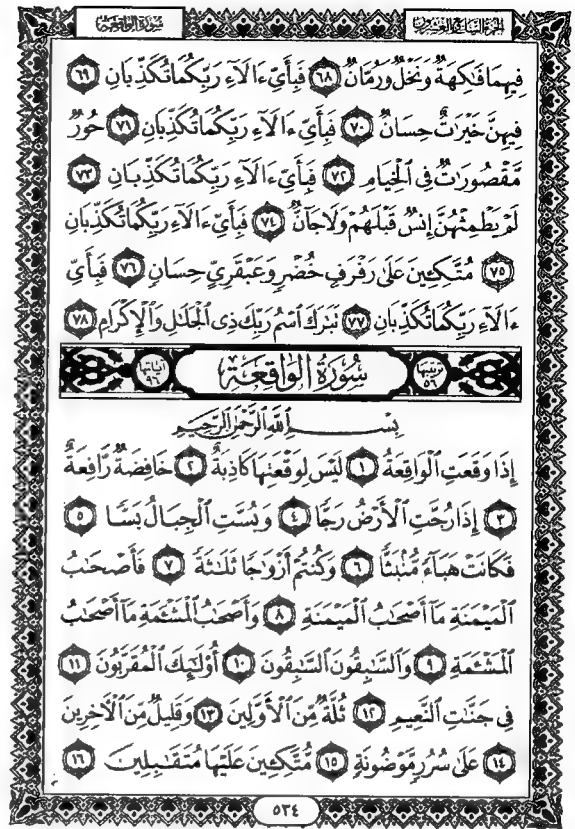 الجزء السابع والعشرون
سورة الواقعة
فِيهِمَا فَٰكِهَةٌ وَنَخْلٌ وَرُمَّانٌ ٦٨ فَبِأَيِّ ءَالَآءِ رَبِّكُمَا تُكَذِّبَانِ ٦٩
فِيهِنَّ خَيْرَٰتٌ حِسَانٌ ٧٠ فَبِأَيِّ ءَالَآءِ رَبِّكُمَا تُكَذِّبَانِ ٧١ حُورٌ
مَّقْصُورَٰتٌ فِى ٱلْخِيَامِ ٧٢ فَبِأَيِّ ءَالَآءِ رَبِّكُمَا تُكَذِّبَانِ ٧٣
لَمْ يَطْمِثْهُنَّ إِنسٌ قَبْلَهُمْ وَلَا جَآنٌّ ٧٤ فَبِأَيِّ ءَالَآءِ رَبِّكُمَا تُكَذِّبَانِ
٧٥ مُتَّكِـِٔينَ عَلَىٰ رَفْرَفٍ خُضْرٍ وَعَبْقَرِىٍّ حِسَانٍ ٧٦ فَبِأَيِّ
ءَالَآءِ رَبِّكُمَا تُكَذِّبَانِ ٧٧ تَبَٰرَكَ ٱسْمُ رَبِّكَ ذِى ٱلْجَلَٰلِ وَٱلْإِكْرَامِ ٧٨
ترتيبها ٥٦ سُورَةُ الوَاقِعَةِ آياتها ٩٦
بِسْمِ ٱللَّهِ ٱلرَّحْمَٰنِ ٱلرَّحِيمِ
إِذَا وَقَعَتِ ٱلْوَاقِعَةُ ١ لَيْسَ لِوَقْعَتِهَا كَاذِبَةٌ ٢ خَافِضَةٌ رَّافِعَةٌ
٣ إِذَا رُجَّتِ ٱلْأَرْضُ رَجًّا ٤ وَبُسَّتِ ٱلْجِبَالُ بَسًّا ٥
فَكَانَتْ هَبَآءً مُّنۢبَثًّا ٦ وَكُنتُمْ أَزْوَٰجًا ثَلَٰثَةً ٧ فَأَصْحَٰبُ
ٱلْمَيْمَنَةِ مَآ أَصْحَٰبُ ٱلْمَيْمَنَةِ ٨ وَأَصْحَٰبُ ٱلْمَشْـَٔمَةِ مَآ أَصْحَٰبُ
ٱلْمَشْـَٔمَةِ ٩ وَٱلسَّٰبِقُونَ ٱلسَّٰبِقُونَ ١٠ أُو۟لَٰٓئِكَ ٱلْمُقَرَّبُونَ ١١
فِى جَنَّٰتِ ٱلنَّعِيمِ ١٢ ثُلَّةٌ مِّنَ ٱلْأَوَّلِينَ ١٣ وَقَلِيلٌ مِّنَ ٱلْءَاخِرِينَ
١٤ عَلَىٰ سُرُرٍ مَّوْضُونَةٍ ١٥ مُّتَّكِـِٔينَ عَلَيْهَا مُتَقَٰبِلِينَ ١٦
٥٣٤